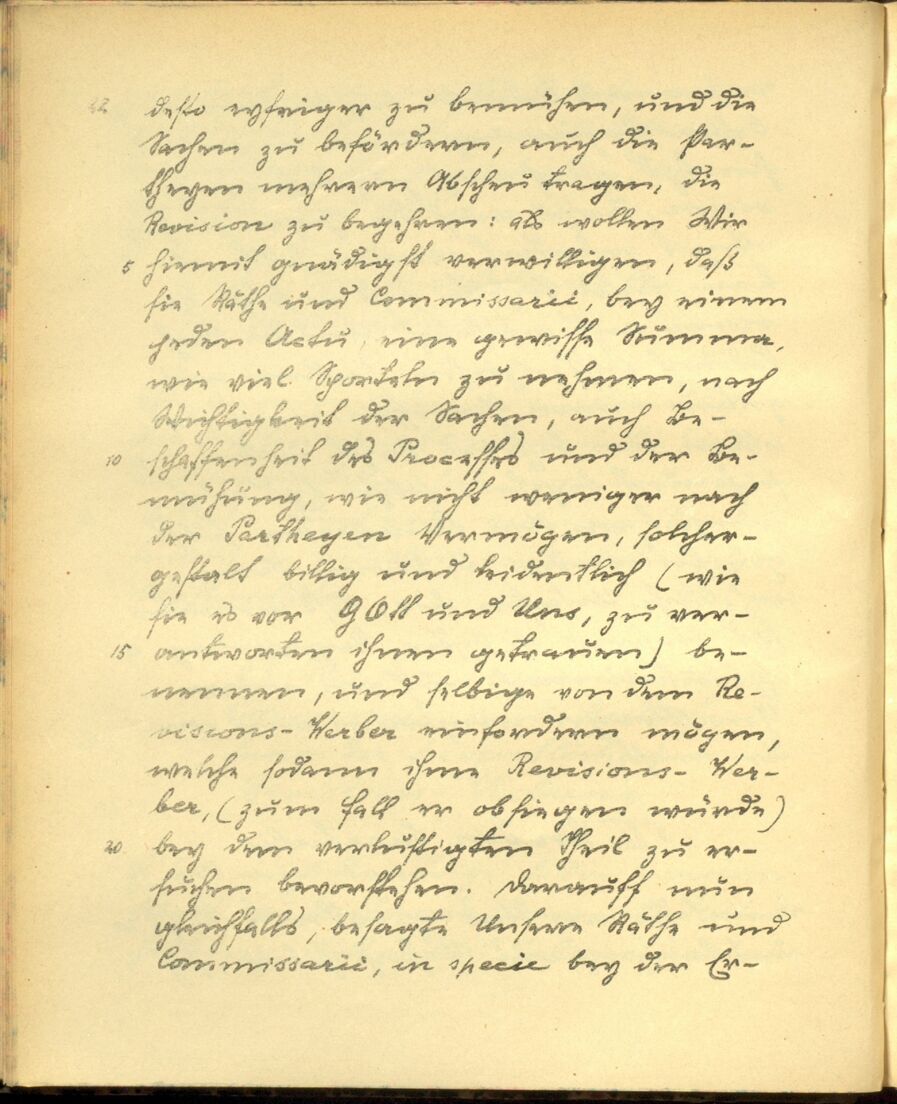 42 desto eyfriger zu bemühen, und die
Sachen zu befördern, auch die Par-
theyen mehrern Abscheu tragen, die
Revision zu begehren: als wollen Wir
5 hiemit gnädigst verwilligen, daß
sie Räthe und Commissarii, bey einem
jeden Actu, eine gewisse Summa,
wie viel Sporteln zu nehmen, nach
Wichtigkeit der Sachen, auch Be-
10 schaffenheit des Processes und der Be-
mühung, wie nicht weniger nach
der Partheyen Vermögen, solcher-
gestalt billig und leidentlich (wie
sie es vor GOtt und Uns, zu ver-
15 antworten ihnen getrauen) be-
nennen, und selbige von dem Re-
visions-Werber einfordern mögen,
welche sodann ihme Revisions-Wer-
ber, (zum fall er obsiegen würde)
20 bey dem verlustigten Theil zu er-
suchen bevorstehen. Darauff nun
gleichfalls, besagte Unsere Räthe und
Commissarii, in specie bey der Er-